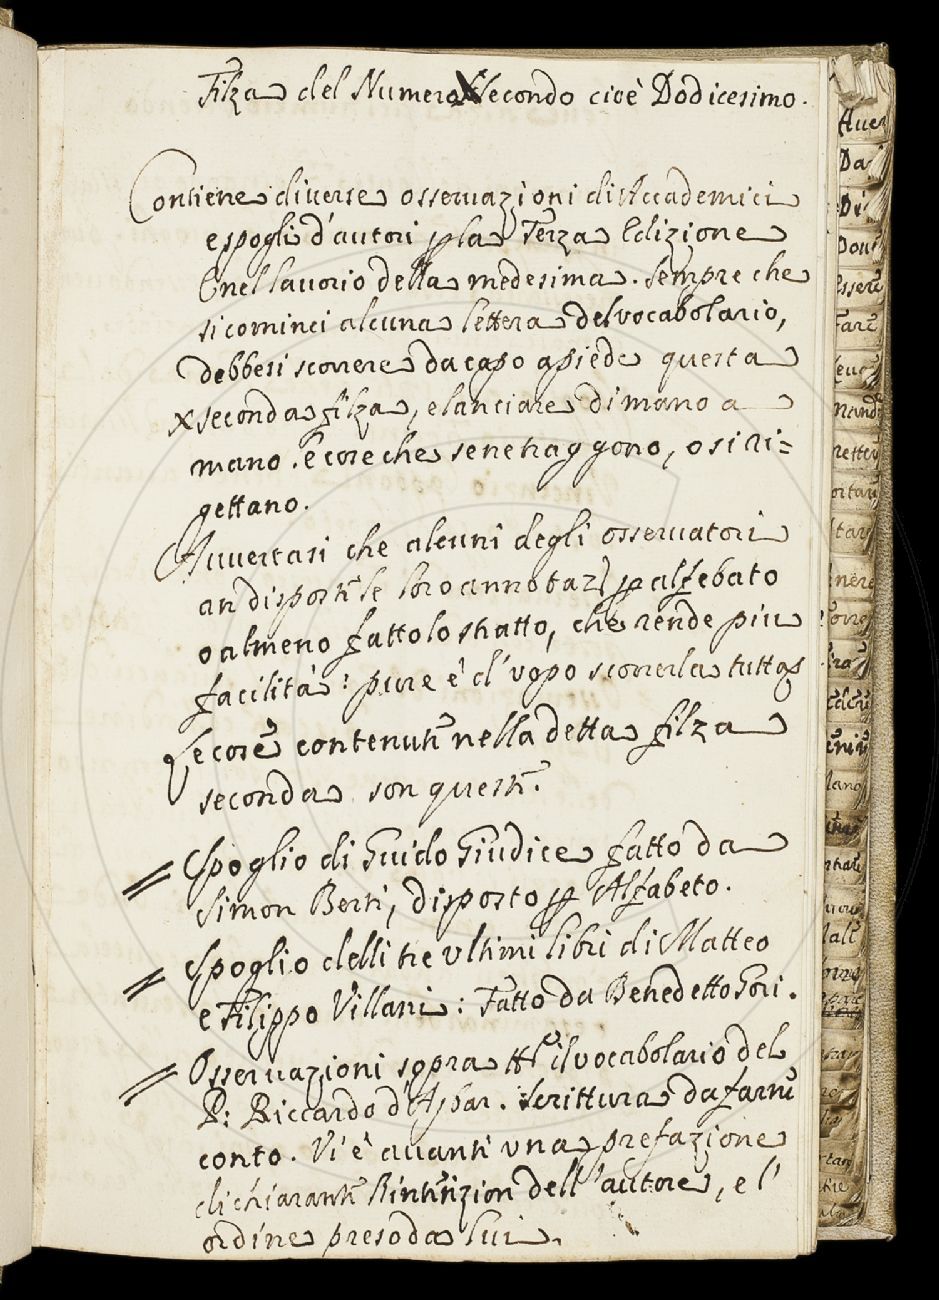 Filza del Numero X Secondo cioè Dodicesimo.
Contiene diverse osservazioni di Accademici
e spogli d'autori p la Terza Edizione
E nel lavorio della medesima. Sempre che
si cominci alcuna lettera del vocabolario,
debbesi scorrere da capo a piede questa
X seconda filza, e lanciare di mano a
mano le cose che se ne traggono, o si ri=
gettano.
Avvertasi che alcuni degli osservatori
an disposti le loro annotazi p alfebato
o almeno fattolo stratto, che rende piu
facilità: pure è d'uopo scorrerla tutta
Le cose contenuti nella detta filza
seconda son questi.
Spoglio di Guido Giudice fatto da
Simon Berti, disposto p Alfabeto.
Spoglio delli tre ultimi libri di Matteo
e Filippo Villani: Fatto da Benedetto Gori.
Osservazioni sopra tt il vocabolario del
P: Riccardo d'Aspar. Scrittura da farne
conto. Vi è avanti una prefazione
dichiaranti dell'autore, e l'
ordine preso da lui.
Aver
Da
Di